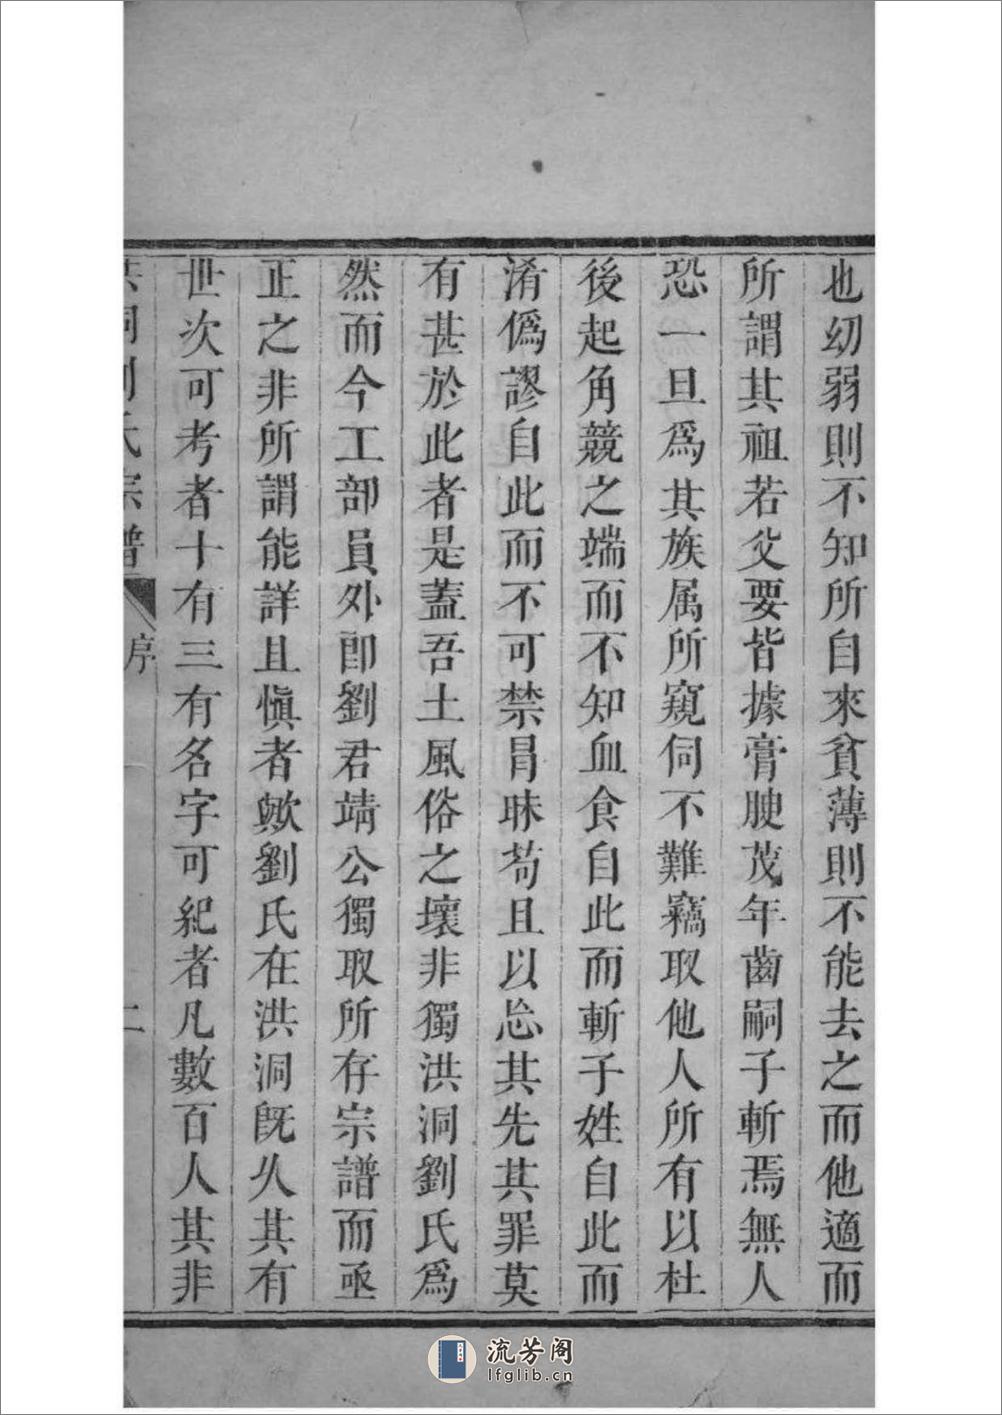 也幼弱則不知所自來貧薄則不能去之而他適而
所謂其祖若父要皆據膏腴茂年齒嗣子斬焉無人
恐一旦爲其族属所窺伺不難竊取他人所有以杜
後起角競之端而不知血食自此而斬子姓自此而
淆僞謬自此而不可禁冐昧苟且以忘其先其罪莫
有甚於此者是蓋吾土風俗之壞非獨洪洞劉氏爲
然而今工部員外郎劉君靖公獨取所存宗譜而亟
正之非所謂能詳且愼者歟劉氏在洪洞旣久其有
世次可考者十有三有名字可紀者凡數百人其非
洪洞劉氏宗譜 序 二
流芳阁
lfglib.cn